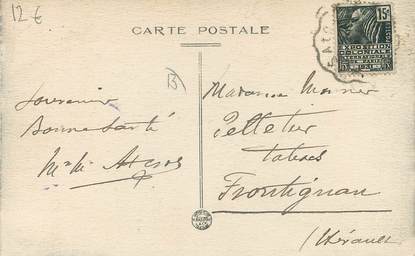 12 €
CARTE POSTALE
15c
EXPOSITION
COLONIALE
INTERNATIONALE
PARIS
1931
B
Souvenir
Bonne Santé
Madame
Pelletier
Tabacs
Frontignan
(Hérault)